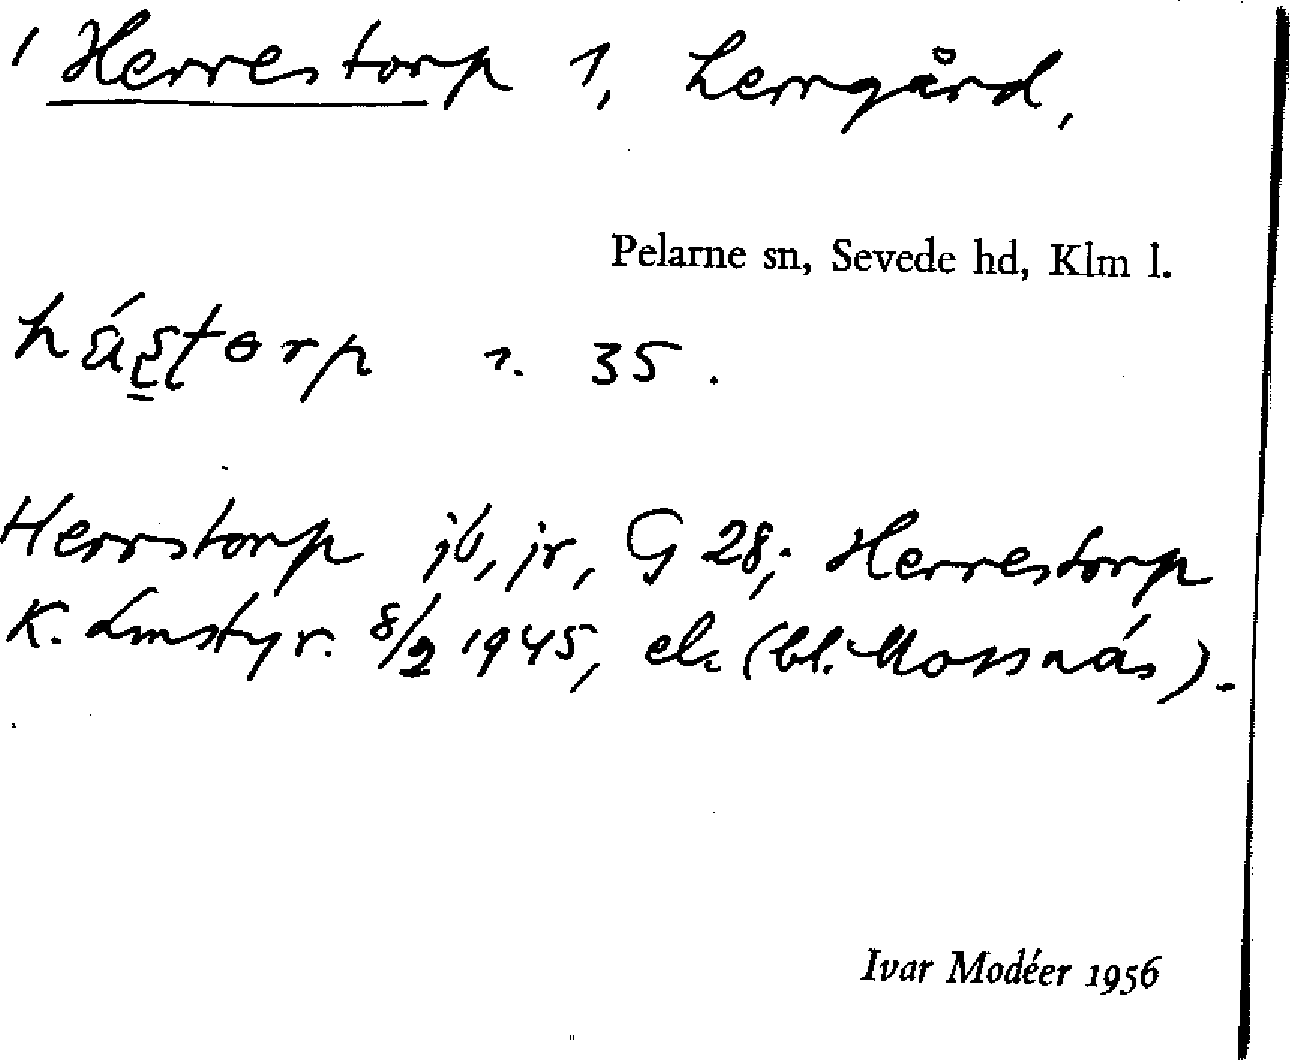 / Herrestorp 1, herrgård,
Pelarne sn, Sevede hd, Klm l.
1. 35.
Herrstorp jb, jr, G 28; Herrestorp
K. Lmstyr. 8/2 1945, ek (bl. Mossnäs).
Ivar Modéer 1956